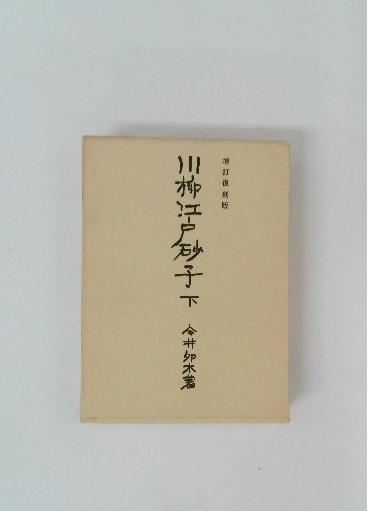 増訂復刻版
川柳江戸砂子 下
今井卯木著